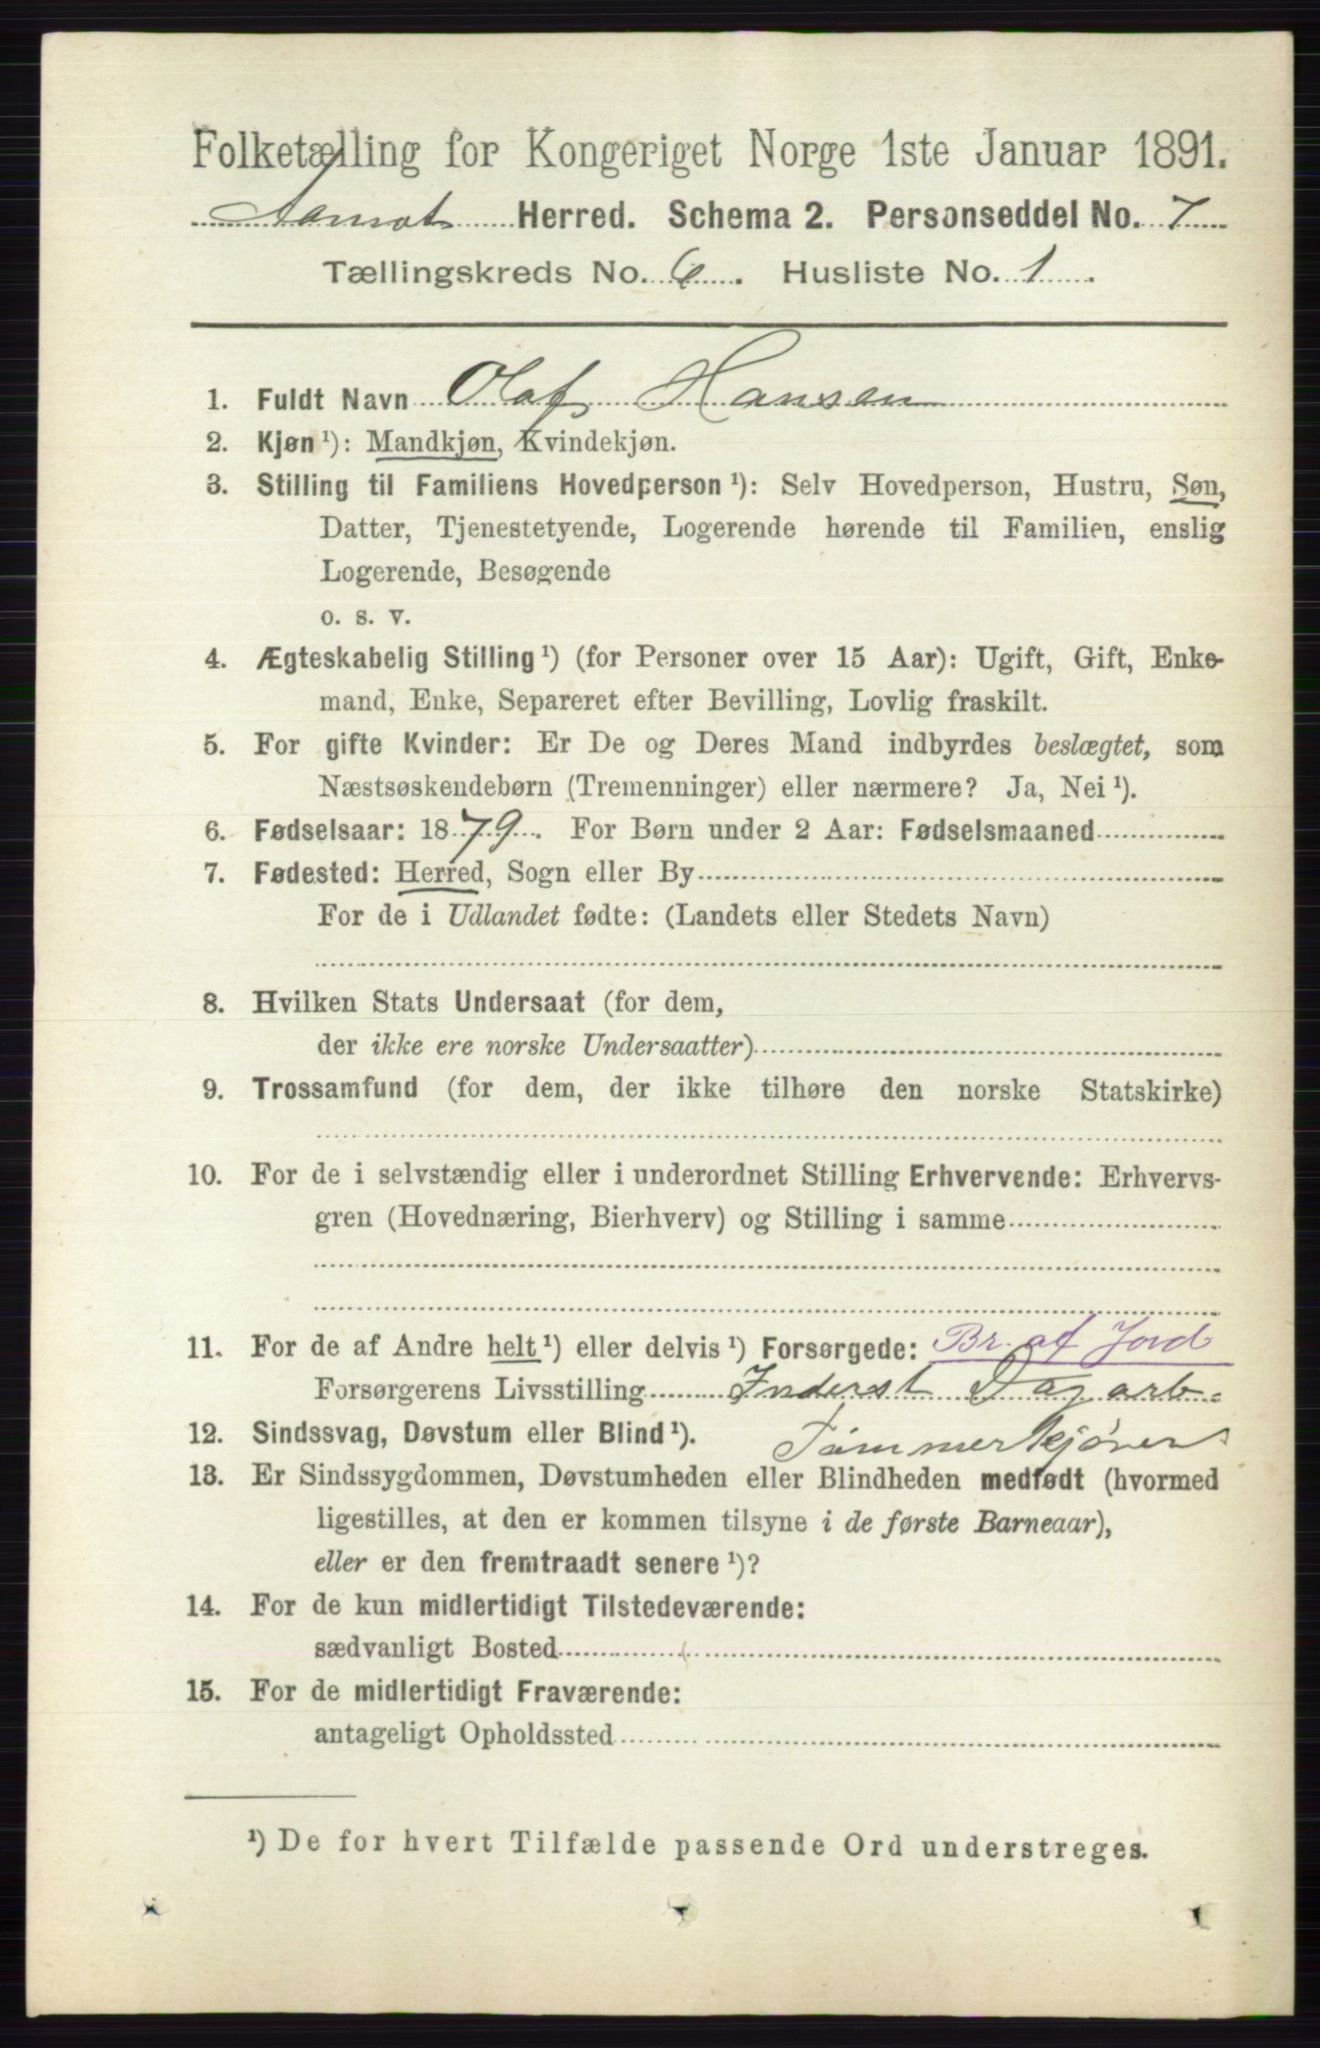 Folketælling for Kongeriget Norge 1ste Januar 1891.
Aamot Herred. Schema 2. Personseddel No. 7
Tællingskreds No. 6. Husliste No. 1.
1. Fuldt Navn Olaf Hansen
2. Kjøn¹): Mandkjøn, Kvindekjøn.
3. Stilling til Familiens Hovedperson¹): Selv Hovedperson, Hustru, Søn,
Datter, Tjenestetyende, Logerende hørende til Familien, enslig
Logerende, Besøgende
o. s. v.
4. Ægteskabelig Stilling¹) (for Personer over 15 Aar): Ugift, Gift, Enke-
mand, Enke, Separeret efter Bevilling, Lovlig fraskilt.
5. For gifte Kvinder: Er De og Deres Mand indbyrdes beslægtet, som
Næstsøskendebørn (Tremenninger) eller nærmere? Ja, Nei¹).
6. Fødselsaar: 1879. For Børn under 2 Aar: Fødselsmaaned
7. Fødested: Herred, Sogn eller By
For de i Udlandet fødte: (Landets eller Stedets Navn)
8. Hvilken Stats Undersaat (for dem,
der ikke ere norske Undersaatter)
9. Trossamfund (for dem, der ikke tilhøre den norske Statskirke)
10. For de i selvstændig eller i underordnet Stilling Erhvervende: Erhvervs-
gren (Hovednæring, Bierhverv) og Stilling i samme
11. For de af Andre helt¹) eller delvis¹) Forsørgede: Br. af Jord
Forsørgerens Livsstilling Inderst Dagarb.
12. Sindssvag, Døvstum eller Blind¹). Tømmerkjører
13. Er Sindssygdommen, Døvstumheden eller Blindheden medfødt (hvormed
ligestilles, at den er kommen tilsyne i de første Barneaar),
eller er den fremtraadt senere¹)?
14. For de kun midlertidigt Tilstedeværende:
sædvanligt Bosted
15. For de midlertidigt Fraværende:
antageligt Opholdssted
¹) De for hvert Tilfælde passende Ord understreges.